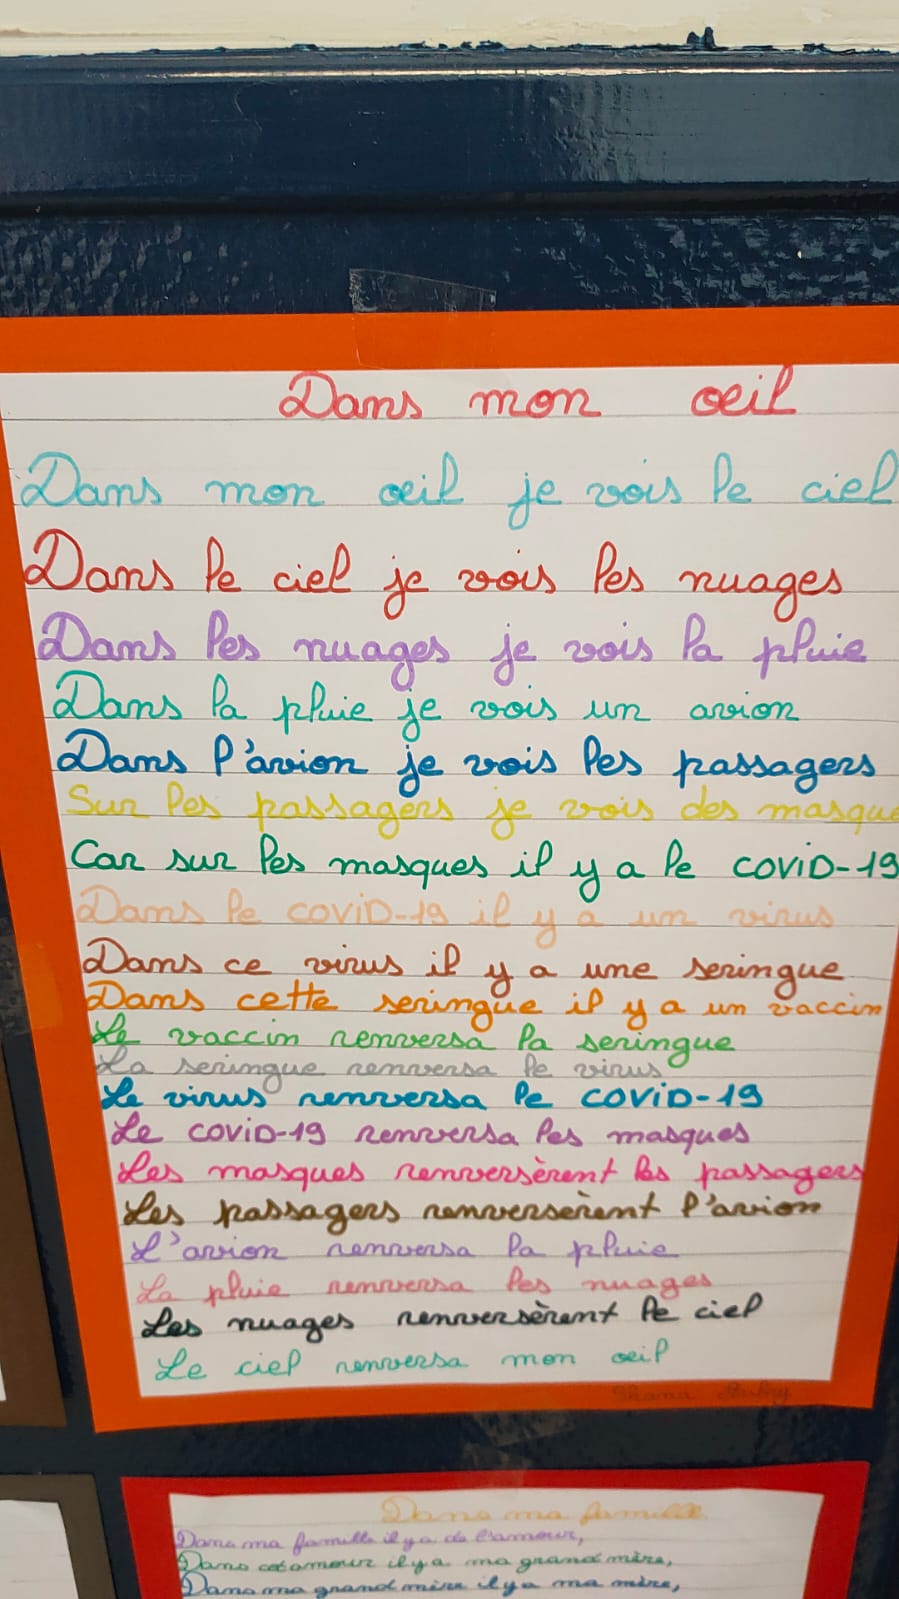 Dans mon oeil
Dans mon oeil je vois le ciel
Dans le ciel je vois les nuages
Dans les nuages je vois la pluie
Dans la pluie je vois un avion
Dans l'avion je vois les passagers
Sur les passagers je vois des masque
Car sur les masques il y a le COVID-19
Dans le COVID-19 il y a un virus
Dans ce virus il y a une seringue
Dans cette seringue il y a un vaccin
Le vaccin renversa la seringue
La seringue renversa le virus
Le virus renversa le COVID-19
Le COVID-19 renversa les masques
Les masques renversèrent les passagers
Les passagers renversèrent l'avion
L'avion renversa la pluie
La pluie renversa les nuages
Les nuages renversèrent le ciel
Le ciel renversa mon oeil
Dans ma famille
Dans ma famille il y a de l'amour,
Dans cet amour il y a ma grand mère,
Dans ma grand mère il y a ma mère,